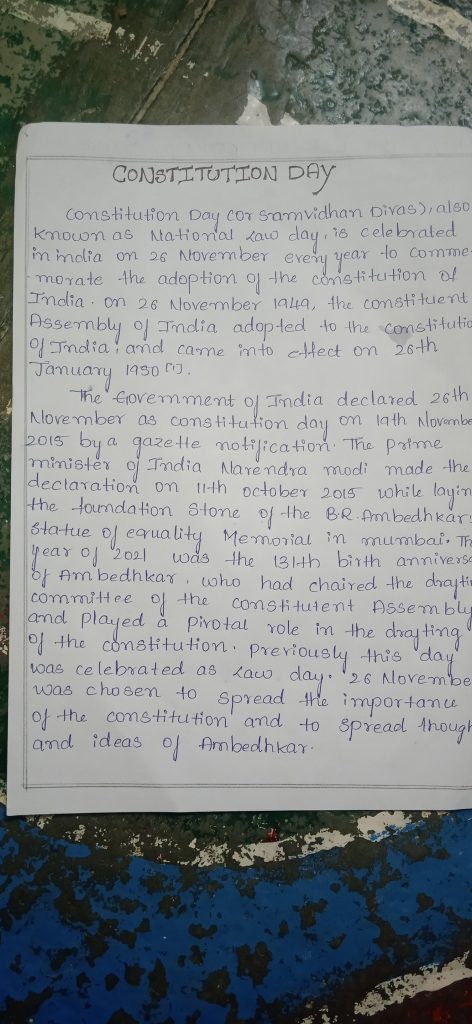 CONSTITUTION DAY
Constitution Day (or Samvidhan Divas), also
known as National Law day, is celebrated
in india on 26 November every year to comme-
-morate the adoption of the constitution of
India. on 26 November 1949, the constituent
Assembly of India adopted to the Constitutio
of India, and came into effect on 26th
January 1950 [1].
The Government of India declared 26th
November as constitution day on 19th Novembe
2015 by a gazette notification. The prime
minister of India Narendra modi made the
declaration on 11th october 2015 while layin
the foundation Stone of the B.R. Ambedhkar
Statue of equality Memorial in mumbai. Th
year of 2021 was the 131th birth annivers
of Ambedhkar, who had chaired the drafti
committee of the constitutent Assembly
and played a pivotal role in the drafting
of the constitution. previously this day
was celebrated as Law day. 26 Novembe
was chosen to spread the importance
of the constitution and to spread though
and ideas of Ambedhkar.